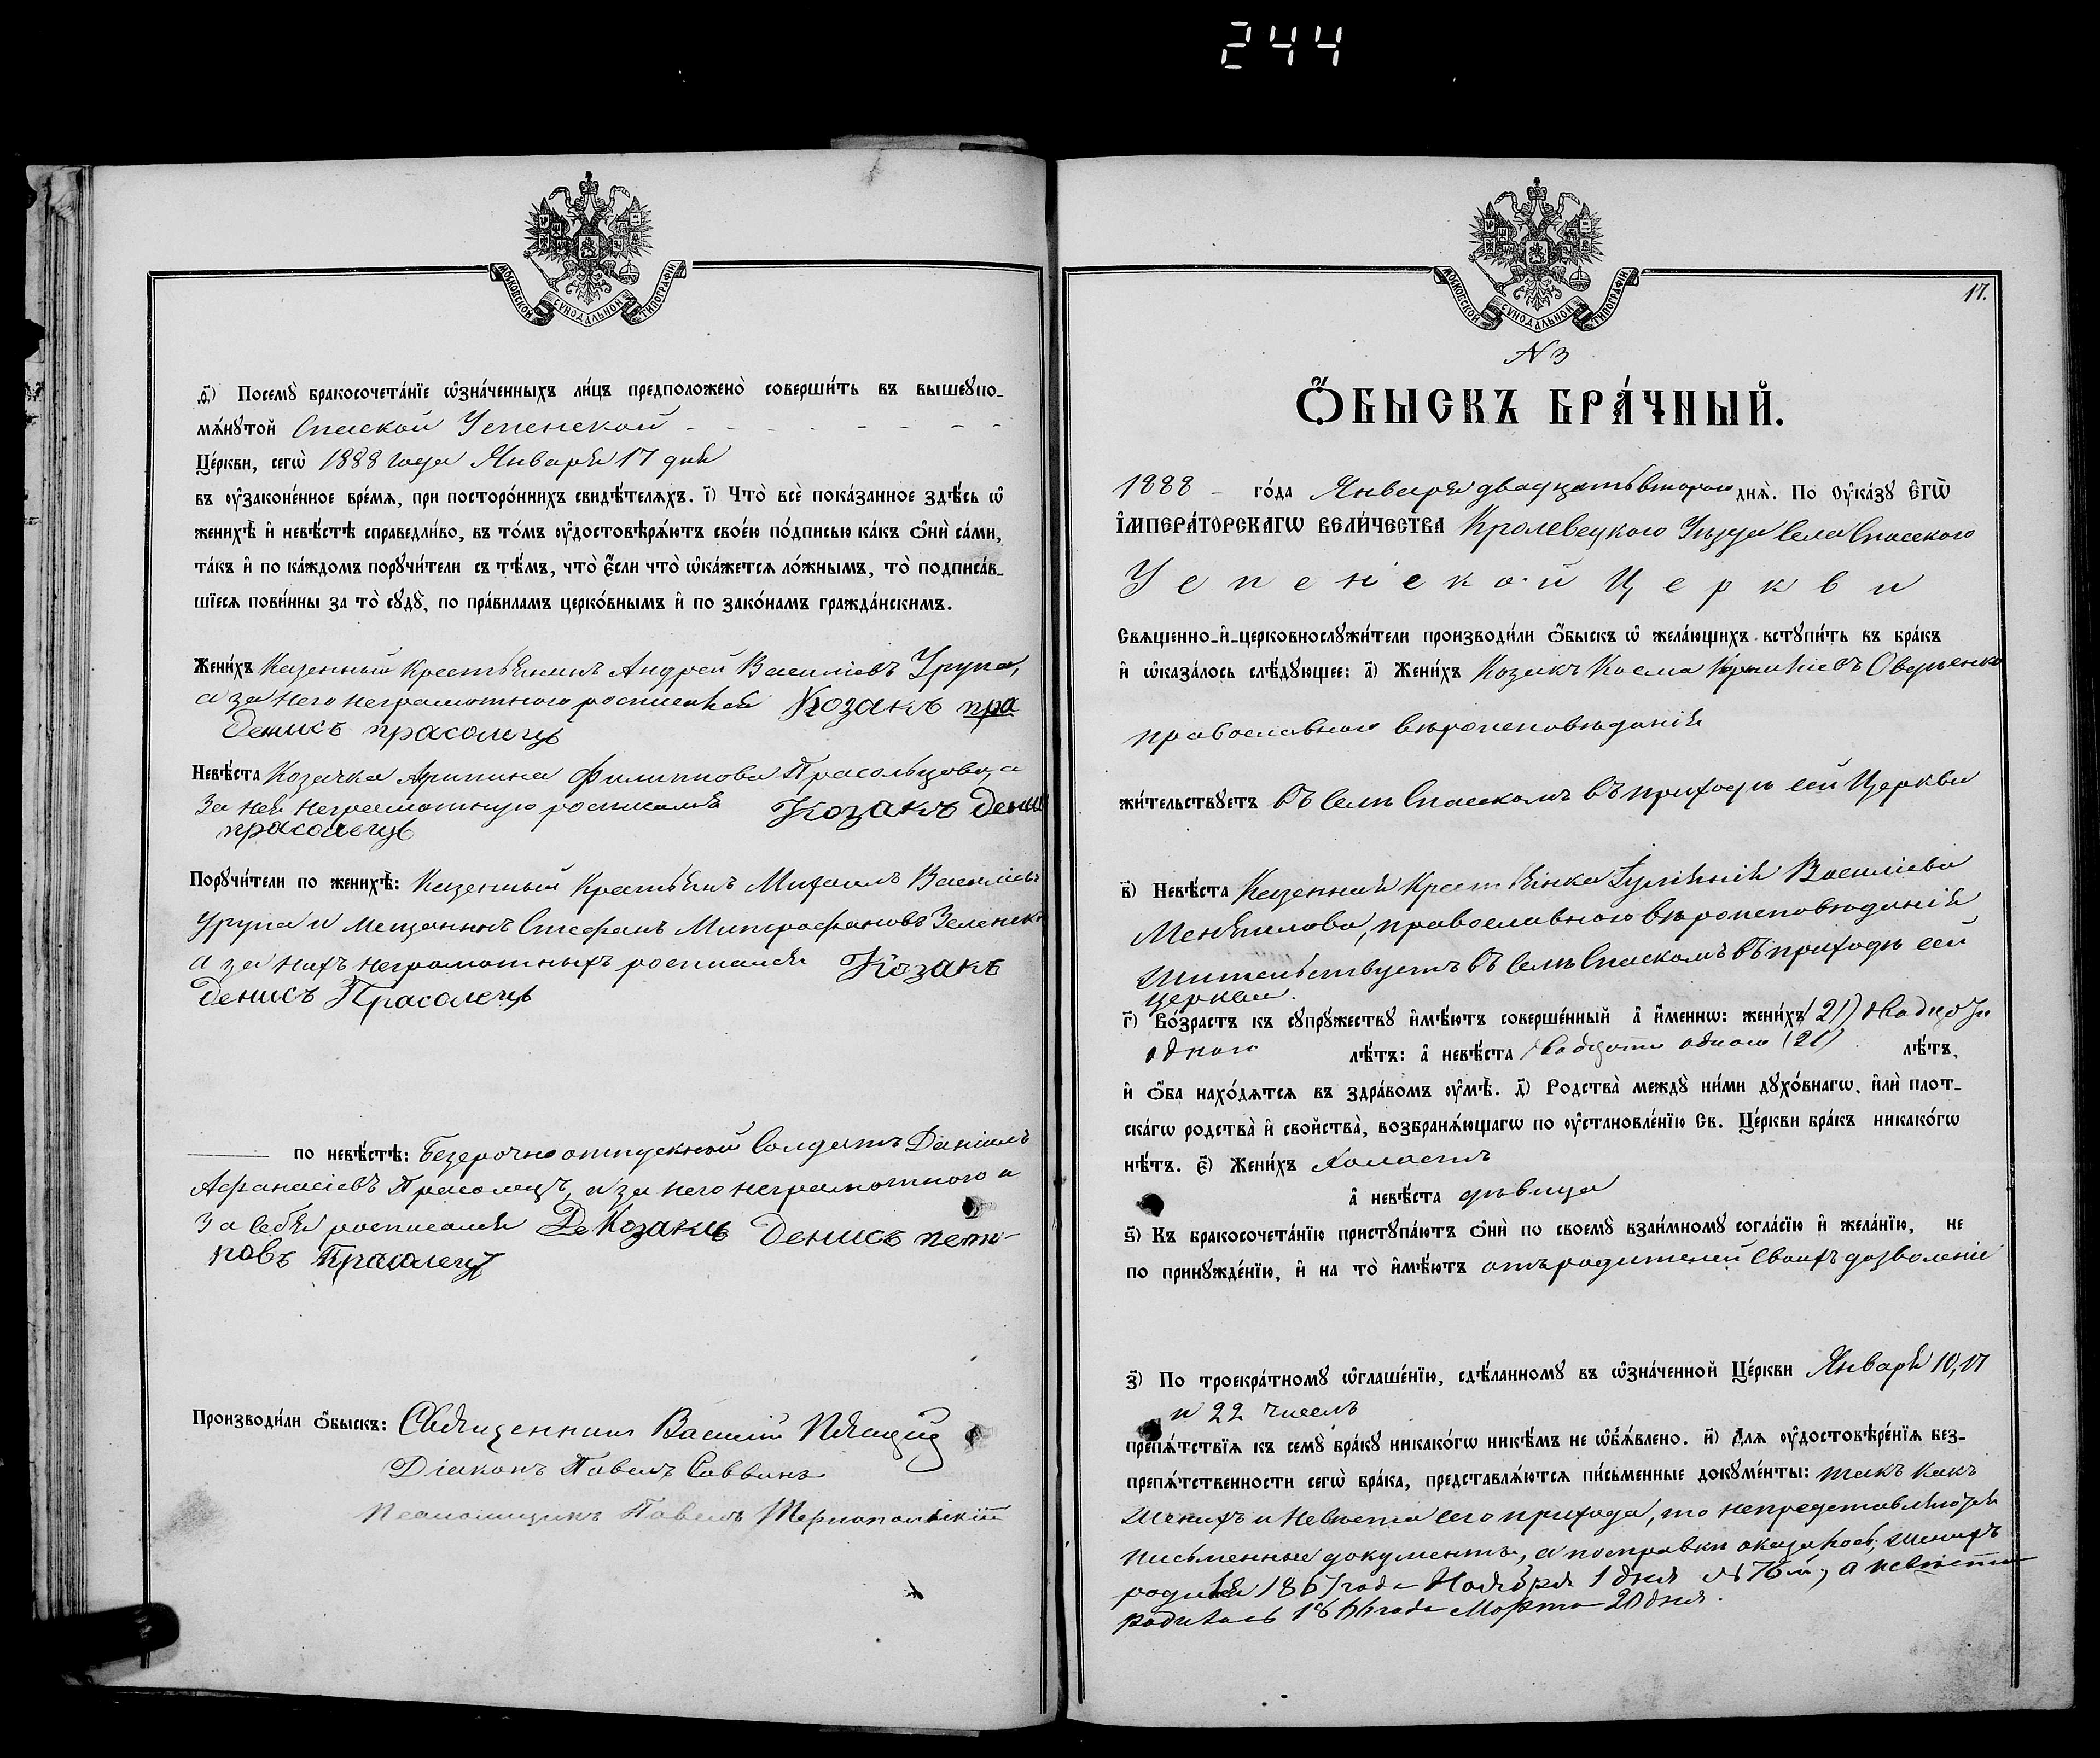 244
МОСКОВСКОЙ СѴНОДАЛЬНОЙ ТИПОГРАФІИ
ѳ҃) Посемꙋ̀ бракосочета́нїе ѡ҆зна́ченныхъ ли́цъ предположено̀ соверши́ть въ вышеꙋпо-
мѧ́нꙋтой Спаской Успенской
Це́ркви, сегѡ̀ 1888 года Января 17 дня
въ ᲂу҆законе́нное вре́мѧ, при посторо́ннихъ свидѣ́телѧхъ. і҃) Что̀ всѐ пока́занное здѣ́сь ѡ҆
женихѣ̀ и҆ невѣ́стѣ справедли́во, въ то́мъ ᲂу҆достовѣрѧ́ютъ свое́ю по́дписью ка́къ ѻ҆нѝ са́ми,
та́къ и҆ по ка́ждомъ порꙋчи́тели съ тѣ́мъ, что̀ є҆́сли что̀ ѡ҆ка́жетсѧ ло́жнымъ, то̀ подписа́в-
шїесѧ пови́нны за то̀ сꙋдꙋ̀, по пра́виламъ церко́внымъ и҆ по зако́намъ гражда́нскимъ.
Жени́хъ Казенный Крестьянинъ Андрей Василіевъ Урупа,
а за него неграмотного росписался Козакъ пра
Денисъ прасолецъ
Невѣ́ста Козачка Агрипина Филиппова Прасольцова, а
за нея неграмотную росписался Козакъ Денис
прасолецъ
Порꙋчи́тели по женихѣ̀: Казенный Крестьянъ Михаилъ Василіевъ
Урупа и мещанинъ Стефанъ Митрофановъ Зеленск
а за нихъ неграмотныхъ росписался Козакъ
Денисъ Прасолецъ
по невѣ́стѣ: Безсрочно отпускный Солдатъ Даніилъ
Афанасіевъ Прасолецъ, а за него неграмотного и
За себя росписался Де Козакъ Денисъ пет-
ровъ Прасолецъ
Производи́ли ѻ҆́быскъ: Священникъ Василій
Діаконъ Павелъ Саввинъ
Псаломщикъ Павелъ Тернопольскій
МОСКОВСКОЙ СѴНОДАЛЬНОЙ ТИПОГРАФІИ
17.
N 3
Ѻ҆́БЫСКЪ БРА́ЧНЫЙ.
1888 го́да Января двадцать второго днѧ̀. По Ѹ҆ка́зꙋ Є҆ГѠ̀
І҆МПЕРА́ТОРСКАГѠ ВЕЛИ́ЧЕСТВА Кролевецкого Уѣзда Села Спасского
Успенской Церкви
Свѧще́нно-и҆-церковнослꙋжи́тели производи́ли ѻ҆́быскъ ѡ҆ жела́ющихъ встꙋпи́ть въ бра́къ
и҆ ѡ҆каза́лось слѣ́дꙋющее: а҃) Жени́хъ Козакъ Косма Оверченко
православного вѣроисповѣданія
жи́тельствꙋетъ въ Селѣ Спасскомъ въ приходѣ сей Церкви
в҃) Невѣ́ста Казенная Крестьянка Василіева
православного вѣроисповѣданія
жительствуетъ въ Селѣ Спаскомъ въ приходѣ сей
церкви.
г҃) Во́зрастъ къ сꙋпрꙋ́жествꙋ и҆мѣ́ютъ соверше́нный а҆ и҆́меннѡ: жени́хъ (21) двадцать
одного лѣ́тъ: а҆ невѣ́ста двадцати одного (21) лѣ́тъ,
и҆ ѻ҆́ба нахо́дѧтсѧ въ здра́вомъ ᲂу҆мѣ̀. д҃) Родства̀ междꙋ̀ ни́ми дꙋхо́внагѡ, и҆лѝ плот-
ска́гѡ родства̀ и҆ сво́йства̀, возбранѧ́ющагѡ по ᲂу҆становле́нїю Св. Це́ркви бра́къ никако́гѡ
нѣ́тъ. є҃) Жени́хъ холостъ
а҆ невѣ́ста дѣвица
ѕ҃) Къ бракосочета́нїю пристꙋпа́ютъ ѻ҆нѝ по своемꙋ̀ взаи́мномꙋ согла́сїю и҆ жела́нїю, не
по принꙋжде́нїю, и҆ на то̀ и҆мѣ́ютъ отъ родителей своихъ дозволеніе
з҃) По троекра́тномꙋ ѡ҆глаше́нїю, сдѣ́ланномꙋ въ ѡ҆зна́ченной Це́ркви Января 10, 17
и 22 числъ
препѧ́тствїѧ къ семꙋ̀ бра́кꙋ никако́гѡ никѣ́мъ не ѡ҆б̾ѧ́влено. и҃) Длѧ ᲂу҆достовѣре́нїѧ без-
препѧ́тственности сегѡ̀ бра́ка, представлѧ́ютсѧ пи́сьменные докꙋме́нты: такъ какъ
женихъ и невѣста сего прихода, то непредставляются
письменные документы, а посправки оказалось, женихъ
родился года Ноября 1 дня а невѣста
родилась 1866 года Марта 20 дня.